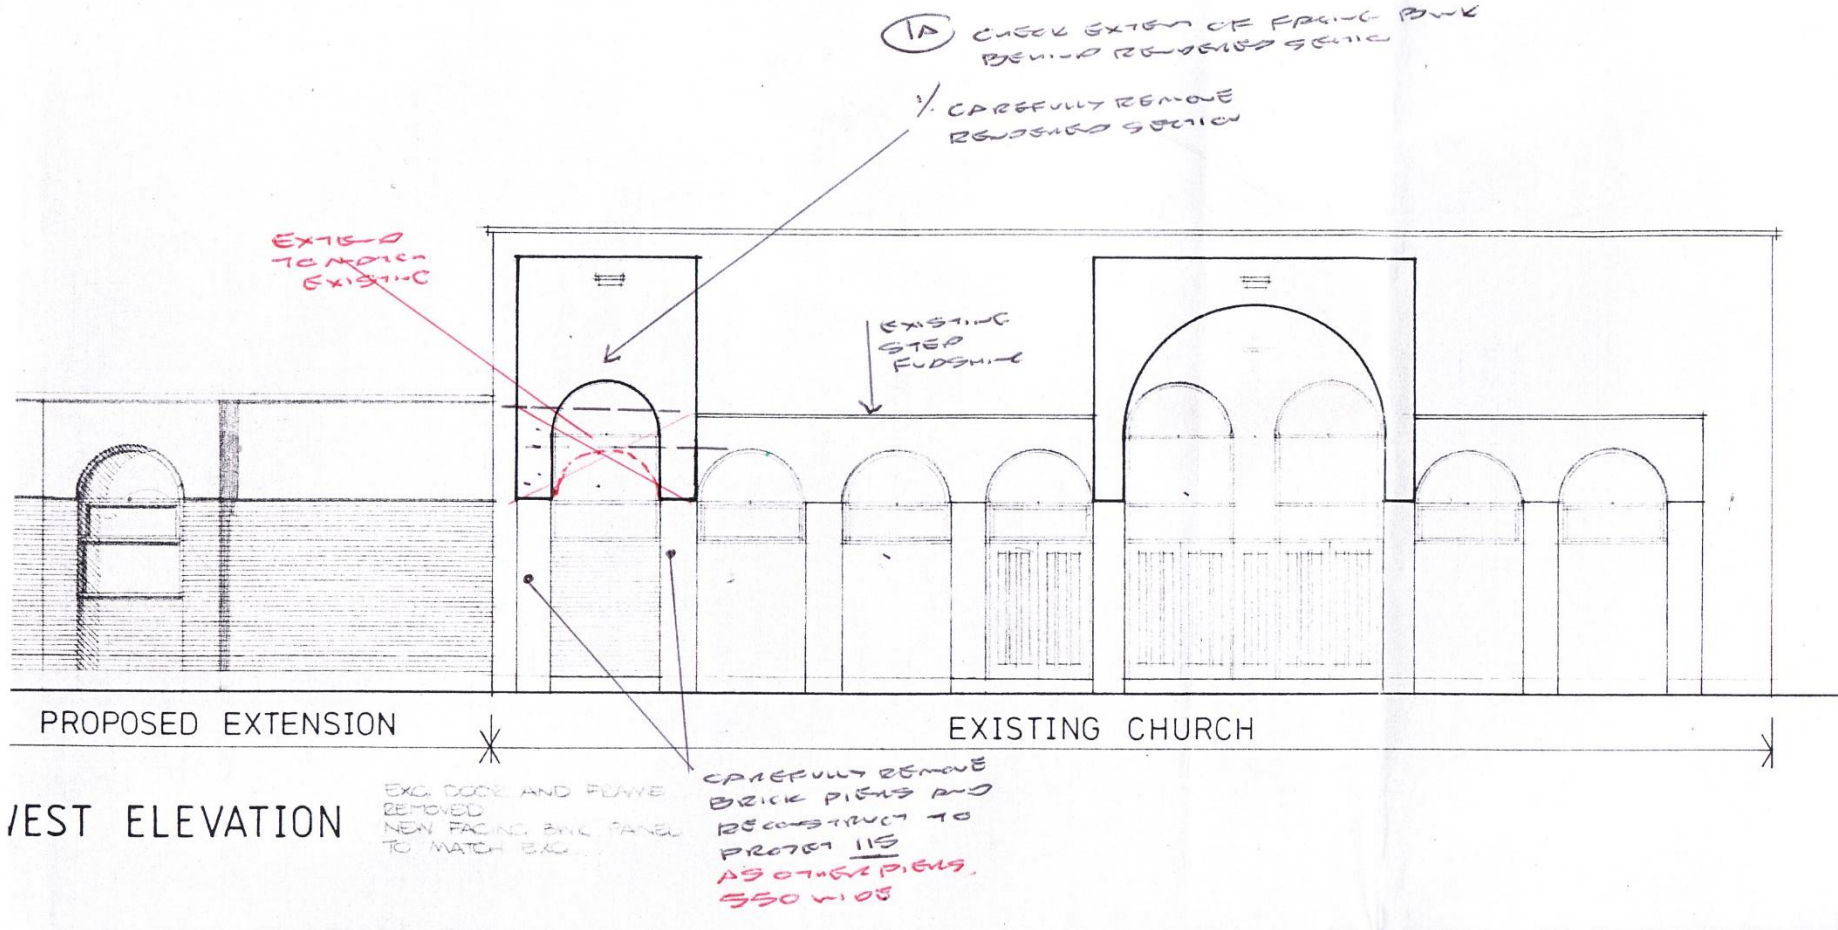 1A CHECK EXTENT OF FACING BWK
BEHIND RENDERED SECTION
1/. CAREFULLY REMOVE
RENDERED SECTION
EXTEND
TO MATCH
EXISTING
EXISTING
STEP
FLASHING
PROPOSED EXTENSION
EXISTING CHURCH
EXG. DOOR AND FRAME
REMOVED
NEW FACING BWK PANEL
TO MATCH EXG...
WEST ELEVATION
CAREFULLY REMOVE
BRICK PIERS AND
RECONSTRUCT TO
PROJECT 115
AS OTHER PIERS.
550 WIDE